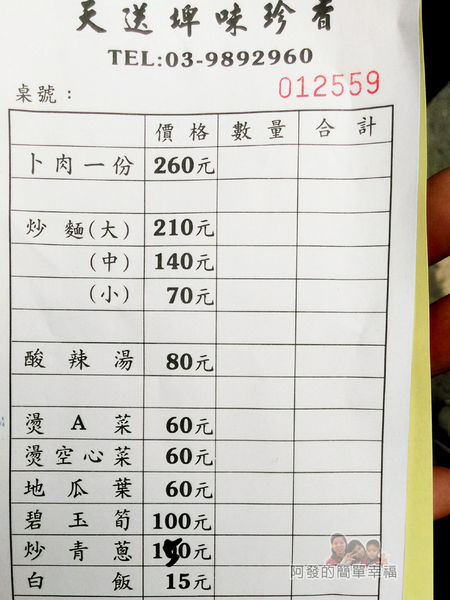 天送埤味珍香
TEL:03-9892960
桌號： 012559
價格 數量 合計
卜肉一份 260元
炒麵(大) 210元
(中) 140元
(小) 70元
酸辣湯 80元
燙A菜 60元
燙空心菜 60元
地瓜葉 60元
碧玉筍 100元
炒青蔥 元
白飯 15元
阿發的簡單幸福